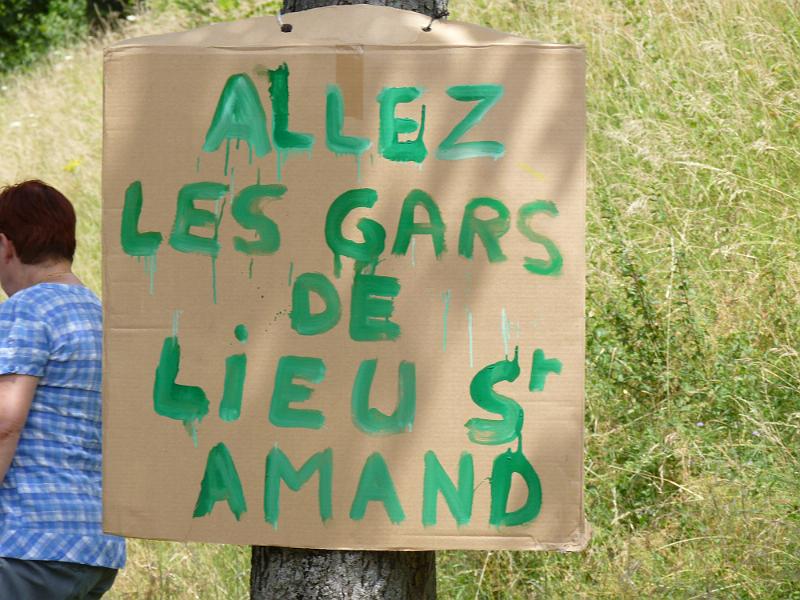 ALLEZ
LES GARS
DE
LiEU St
AMAND